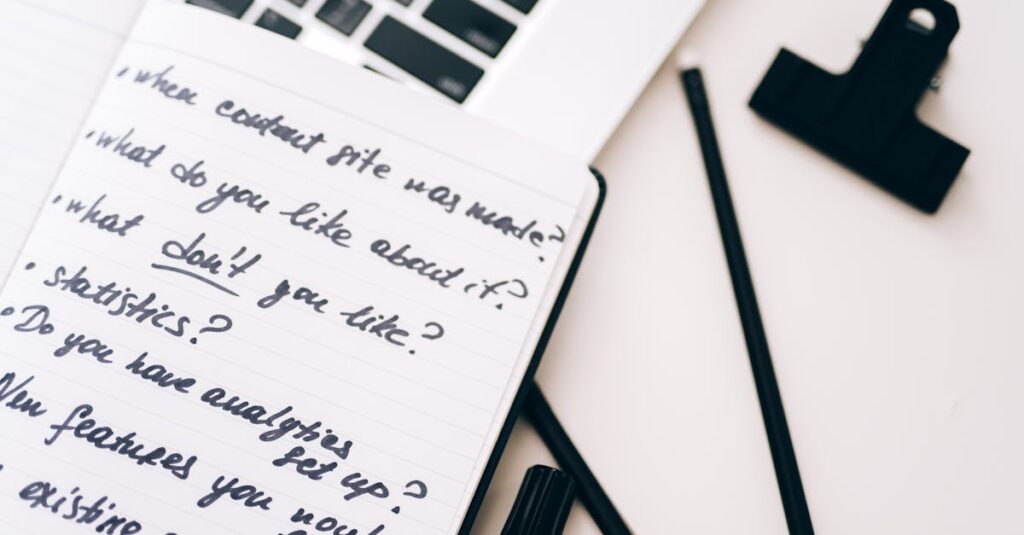 • when content site was made?
• what do you like about it?
• what don't you like?
• statistics?
• Do you have analytics
set up?
New features you
existing